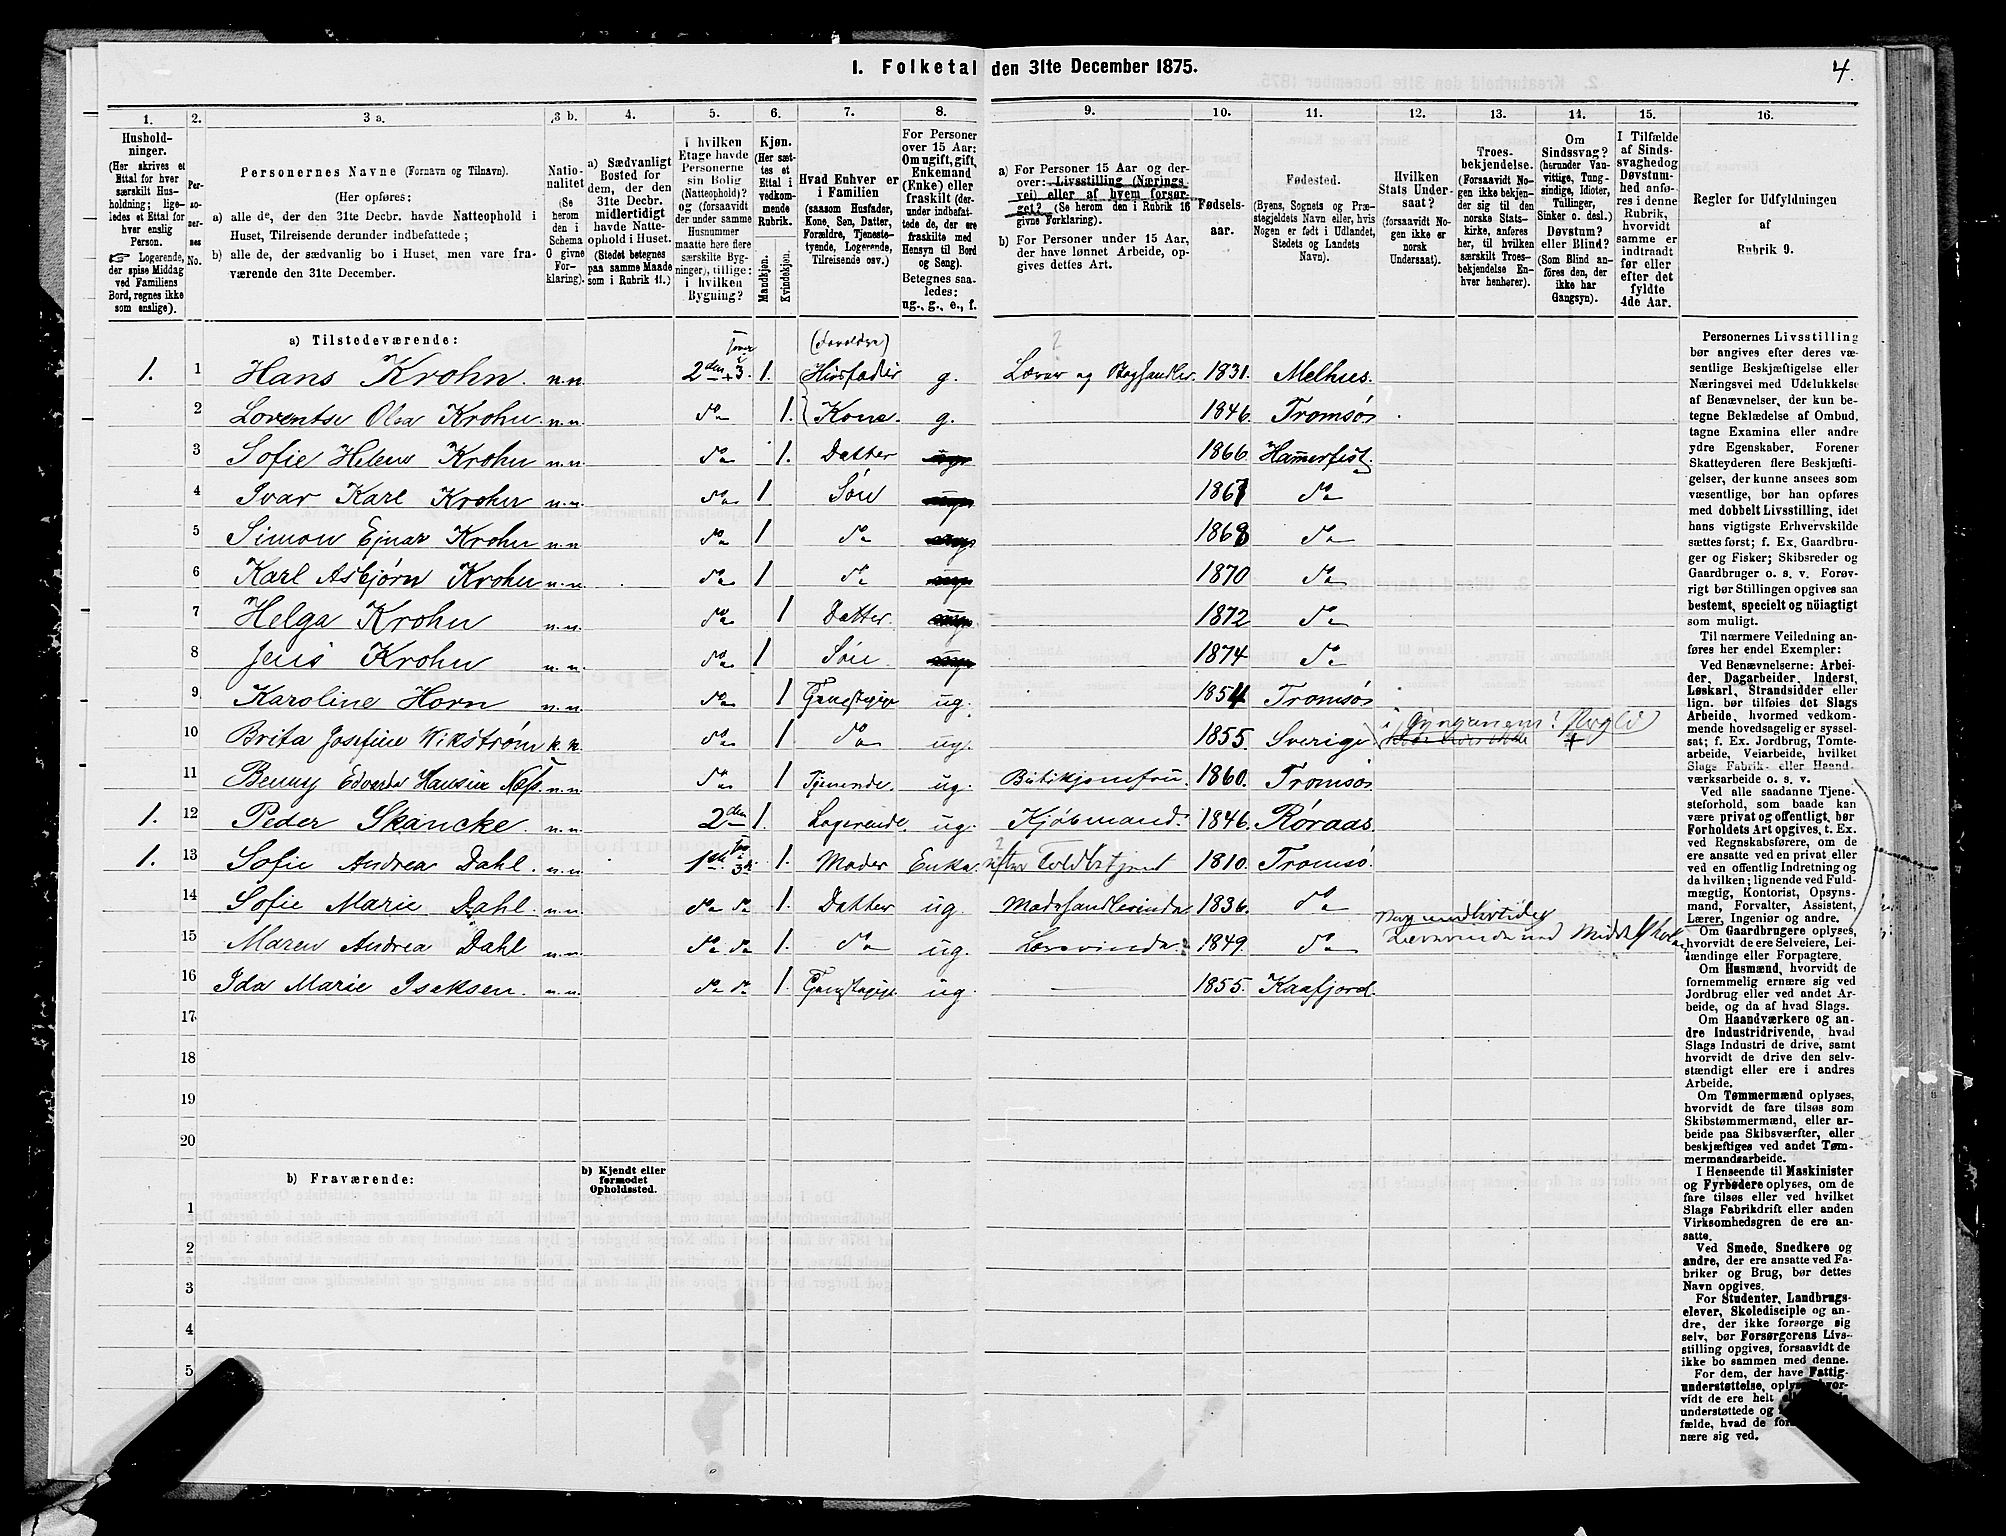 1. Folketal den 31te December 1875.
4.
1. 2. 3 a. 3 b. 4. 5. 6. 7. 8. 9. 10. 11. 12. 13. 14. 15. 16.
Hushold-
ninger.
(Her skrives et
Ettal for hver
særskilt Hus-
holdning; lige-
ledes et Ettal for
hver enslig
Person.
☞ Logerende,
der spise Middag
ved Familiens
Bord, regnes ikke
som enslige).
Per-
so-
ner-
nes
No.
Personernes Navne (Fornavn og Tilnavn).
(Her opføres:
a) alle de, der den 31te Decbr. havde Natteophold i
Huset, Tilreisende derunder indbefattede;
b) alle de, der sædvanlig bo i Huset, men vare fra-
værende den 31te December.
Natio-
nalitet
(Se
herom
den i
Schema
G givne
For-
klaring).
a) Sædvanligt
Bosted for
dem, der den
31te Decbr.
midlertidigt
havde Natte-
ophold i Huset.
(Stedet betegnes
paa samme Maade
som i Rubrik 11.)
I hvilken
Etage havde
Personerne
sin Bolig
(Natteophold)?
og (forsaavidt
der under samme
Husnummer
maatte høre flere
særskilte Byg-
ninger), tillige:
i hvilken
Bygning?
Kjøn.
(Her sæt-
tes et
Ettal i
vedkom-
mende
Rubrik.
Mandkjøn.
Kvindekjøn.
Hvad Enhver er
i Familien
(saasom Husfader,
Kone, Søn, Datter,
Forældre, Tjeneste-
tyende, Logerende,
Tilreisende osv.)
For Personer
over 15 Aar:
Om ugift, gift,
Enkemand
(Enke) eller
fraskilt (der-
under indbefat-
tede de, der ere
fraskilte med
Hensyn til Bord
og Seng).
Betegnes saa-
ledes:
ug., g., e., f.
a) For Personer 15 Aar og der-
over: Livsstilling (Nærings-
vei) eller af hvem forsør-
get? (Se herom den i Rubrik 16
givne Forklaring).
b) For Personer under 15 Aar,
der have lønnet Arbeide, op-
gives dettes Art.
Fødsels-
aar.
Fødested.
(Byens, Sognets og Præ-
stegjeldets Navn eller, hvis
Nogen er født i Udlandet,
Stedets og Landets
Navn).
Hvilken
Stats Under-
saat?
(forsaavidt No-
gen ikke er
norsk
Undersaat).
Troes-
bekjendelse.
(Forsaavidt No-
gen ikke bekjen-
der sig til den
norske Stats-
kirke, anføres
her, til hvilken
særskilt Troes-
bekjendelse En-
hver henhører).
Om
Sindssvag?
(herunder Van-
vittige, Tung-
sindige, Idioter,
Tullinger,
Sinker o. desl.)
Døvstum?
eller Blind?
(Som Blind an-
føres den, der
ikke har
Gangsyn).
I Tilfælde
af Sinds-
svaghedog
Døvstum-
hed anfø-
res i denne
Rubrik,
hvorvidt
samme er
indtraadt
før eller
efter det
fyldte
4de Aar.
Regler for Udfyldningen
af
Rubrik 9.
a) Tilstedeværende:
1. 1 Hans Krohn. n.n. 2den + 3. 1. (Forældre) Husfader g. Lærer og Boghandler. 1831. Melhus.
2 Lorentse Olea Krohn. n.n. do 1. Kone. g. 1846. Tromsø
3 Sofie Helene Krohn n.n. do 1. Datter ug. 1866 Hammerfest.
4 Ivar Karl Krohn n.n. do 1 Søn ug. 1867 do
5 Simon Ejnar Krohn n.n do 1 do ug. 1868 do
6 Karl Asbjørn Krohn n.n. do 1 do ug. 1870 do
7 Helga Krohn n.n. do 1 Datter ug. 1872 do
8 Jens Krohn n.n. do 1 Søn ug. 1874 do
9 Karoline Horn n.n. do 1 ug. 1854 Tromsø
10 Brita Josefine Wikstrøm k.k. do 1. do ug. 1855. Sverige
11 Benny Edvarda Hansine Næss. n.n. do 1 Tjenende. ug. Butikjomfru. 1860. Tromsø
1. 12 Peder Skancke. n.n. 2den 1. Logerende. ug. Kjøbmand. 1846. Røraas.
1. 13 Sofie Andrea Dahl. n.n. 1ste 1. Moder Enke. efter Toldbetjent 1810. Tromsø.
14 Sofie Marie Dahl. n.n. do do 1. Datter ug. Modehandlerinde 1836. do
15 Maren Andrea Dahl n.n. do do 1. do ug. Lærerinde. 1849. do
16 Ida Marie Iseksen. n.n. do do 1. ug. 1855. Kaafjord.
17
18
19
20
b) Fraværende:
b) Kjendt eller
formodet
Opholdssted.
1
2
3
4
5
Personernes Livsstilling
bør angives efter deres væ-
sentlige Beskjæftigelse eller
Næringsvei med Udelukkelse
af Benævnelser, der kun be-
tegne Beklædelse af Ombud,
tagne Examina eller andre
ydre Egenskaber. Forener
Skatteyderen flere Beskjæfti-
gelser, der kunne ansees som
væsentlige, bør han opføres
med dobbelt Livsstilling, idet
hans vigtigste Erhvervskilde
sættes først; f. Ex. Gaardbru-
ger og Fisker; Skibsreder og
Gaardbruger o. s. v. Forøv-
rigt bør Stillingen opgives saa
bestemt, specielt og nöiagtigt
som muligt.
Til nærmere Veiledning an-
føres her endel Exempler:
Ved Benævnelserne: Arbei-
der, Dagarbeider, Inderst,
Løskarl, Strandsidder eller
lign. bør tilføies det Slags
Arbeide, hvormed vedkom-
mende hovedsagelig er syssel-
sat; f. Ex. Jordbrug, Tomte-
arbeide, Veiarbeide, hvilket
Slags Fabrik- eller Haand-
værksarbeide o. s. v.
Ved alle saadanne Tjene-
steforhold, som baade kan
være privat og offentligt, bør
Forholdets Art opgives, t. Ex.
ved Regnskabsførere, om de
ere ansatte ved en privat eller
ved en offentlig Indretning og
da hvilken; lignende ved Fuld-
mægtig, Kontorist, Opsyns-
mand, Forvalter, Assistent,
Lærer, Ingeniør og andre.
Om Gaardbrugere oplyses,
hvorvidt de ere Selveiere, Lei-
lændinge eller Forpagtere.
Om Husmænd, hvorvidt de
fornemmelig ernære sig ved
Jordbrug eller ved andet Ar-
beide, og da af hvad Slags.
Om Haandværkere og an-
dre Industridrivende, hvad
Slags Industri de drive, samt
hvorvidt de drive den selv-
stændigt eller ere i andres
Arbeide.
Om Tømmermænd oplyses,
hvorvidt de fare tilsøs som
Skibstømmermænd, eller ar-
beide paa Skibsværfter, eller
beskjæftiges ved andet Tøm-
mermandsarbeide.
I Henseende til Maskinister
og Fyrbødere oplyses, om de
fare tilsøs eller ved hvilket
Slags Fabrikdrift eller anden
Virksomhedsgren de ere an-
satte.
Ved Smede, Snedkere og
andre, der ere ansatte ved Fa-
briker og Brug, bør dettes
Navn opgives.
For Studenter, Landbrugs-
elever, Skoledisciple og an-
dre, der ikke forsørge sig
selv, bør Forsørgerens Livs-
stilling opgives, forsaavidt de
ikke bo sammen med denne.
For dem, der have Fattig-
understøttelse, oplyses, hvor-
vidt de ere helt
understøttede og
fælde, hvad de
nære sig ved.